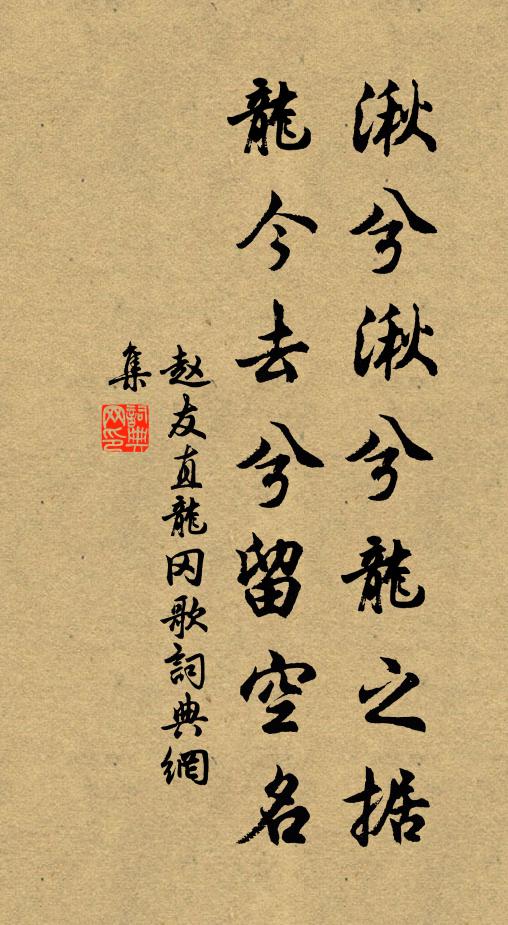 湫兮湫兮龍之据
龍今去兮留空名
赵友直龍冈歌詞典網
集
詞典网印